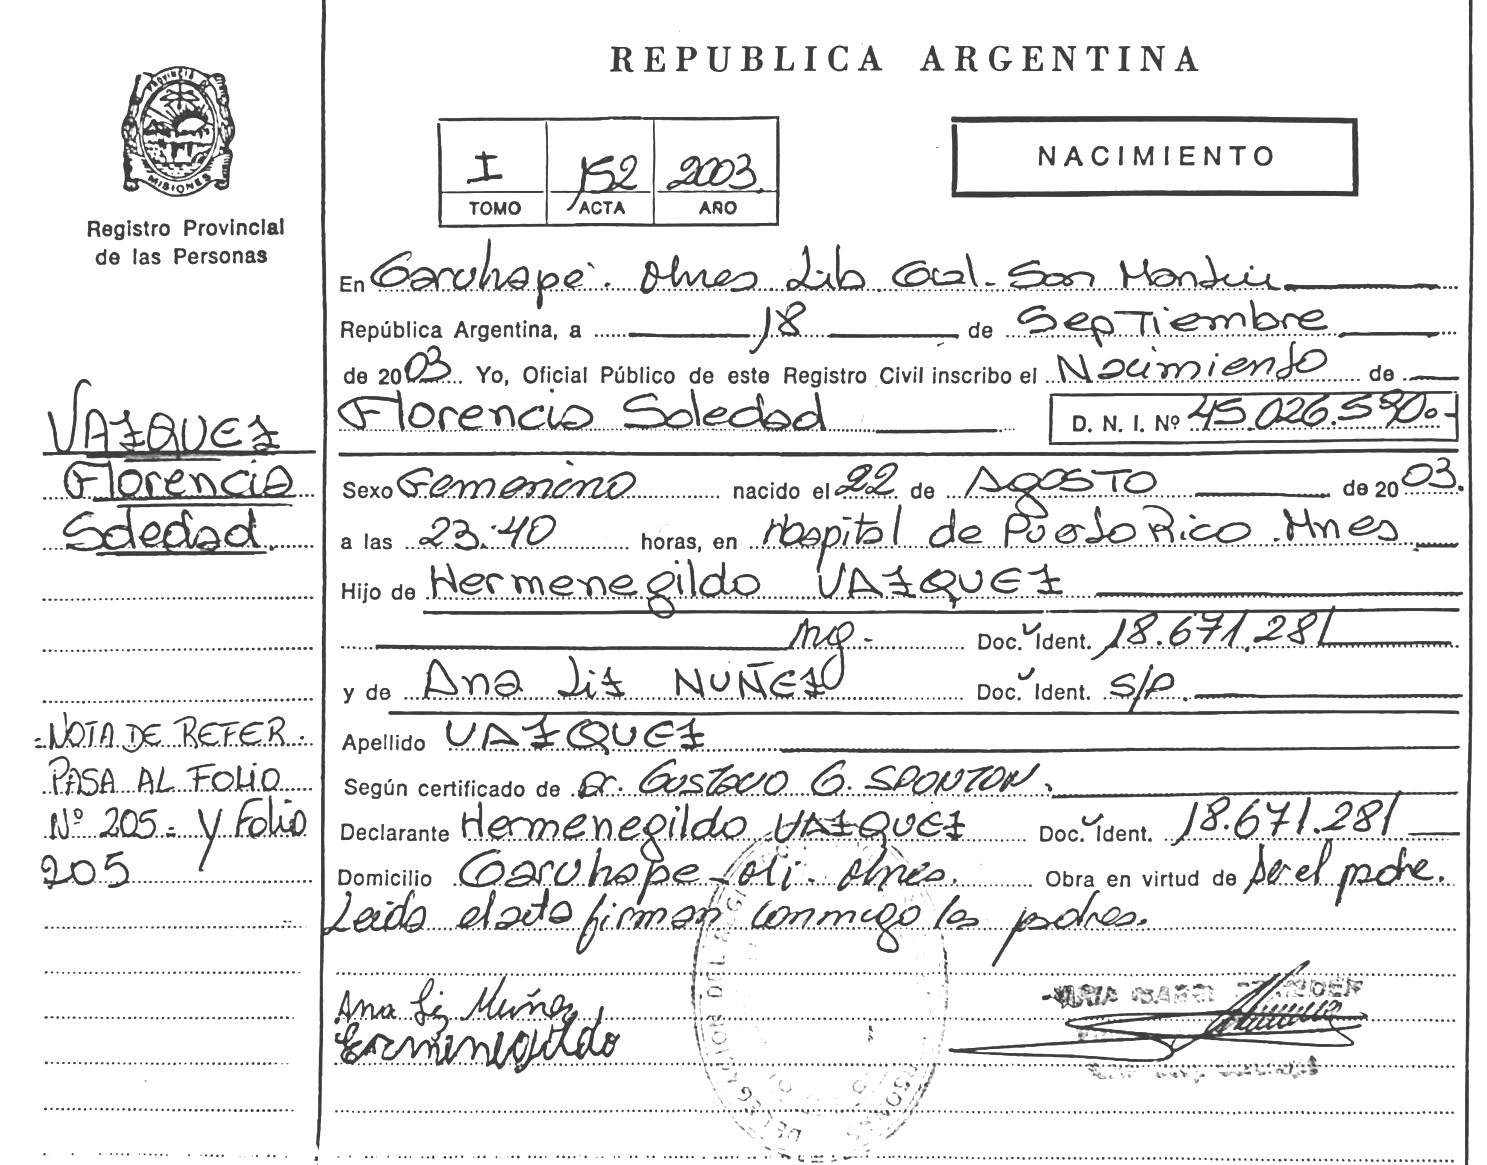 REPUBLICA ARGENTINA
PROVINCIA DE
MISIONES
Registro Provincial
de las Personas
I 152 2003
TOMO ACTA AÑO
NACIMIENTO
En Garuhapé. Mnes Lib Gral. San Martin
República Argentina, a 18 de Septiembre
de 2003 Yo, Oficial Público de este Registro Civil inscribo el Nacimiento de
Florencia Soledad D. N. I. Nº 45.026.590.-
VAZQUEZ
Florencia
Soledad
Sexo Femenino nacido el 22 de AgosTO de 2003.
a las 23:40 horas, en Hospital de Puerto Rico. Mnes
Hijo de Hermenegildo VAZQUEZ
Arg.- Doc. Ident. 18.671.281
y de Ana Liz NUÑEZ Doc. Ident. S/P.
Apellido VAZQUEZ
Según certificado de Dr. GUSTAVO G. SPONTON.
Declarante Hermenegildo VAZQUEZ Doc. Ident. 18.671.281
Domicilio Garuhape Mnes. Obra en virtud de ser el padre.
Leida el acta firman conmigo los padres.
NOTA DE REFER.
PASA AL FOLIO
Nº 205- y Folio
205
Ana Liz Nuñez
Ermenegildo